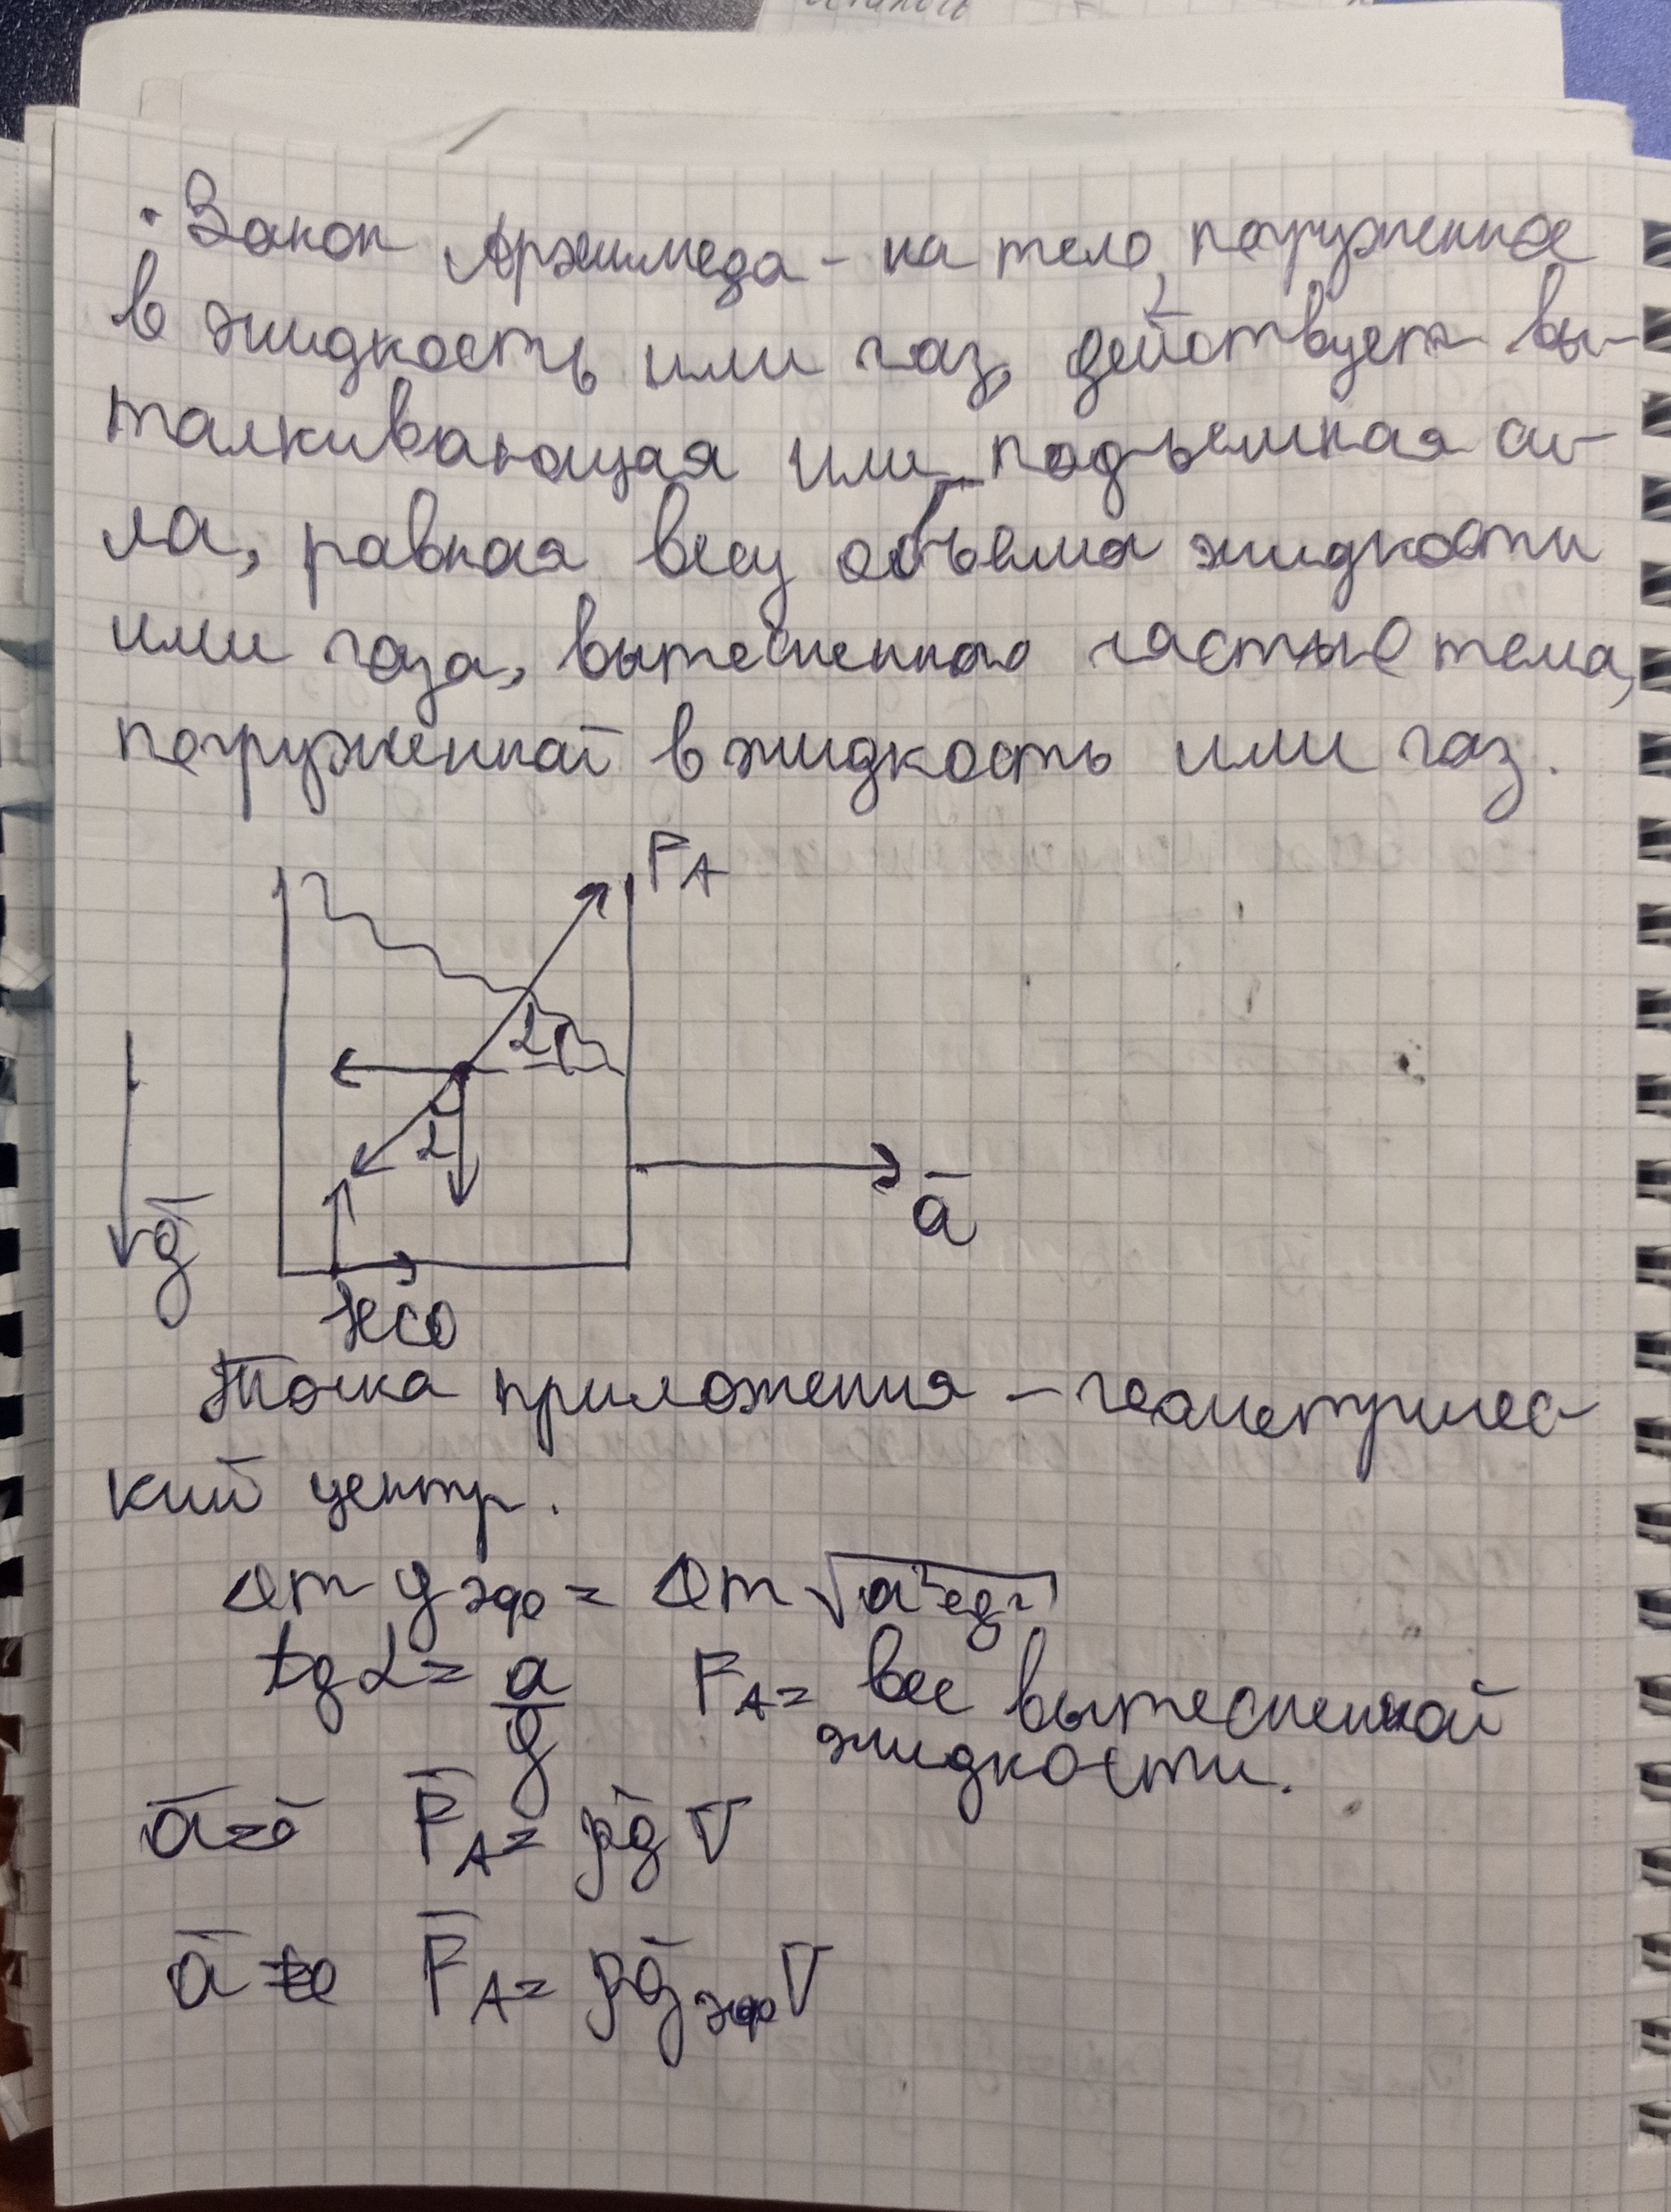 · Закон Архимеда – на тело, погруженное
в жидкость или газ, действует вы-
талкивающая или подъемная си-
ла, равная весу объема жидкости
или газа, вытесненного частью тела,
погруженной в жидкость или газ.
F_A
α
α
a̅
g̅
НСО
Точка приложения – геометричес-
кий центр.
Δm g эф = Δm √a²+g²
tg α = a/g F_A = вес вытесненной
жидкости.
a̅=0 F̅_A = ρg̅V
a̅≠0 F̅_A = ρg̅ эф V